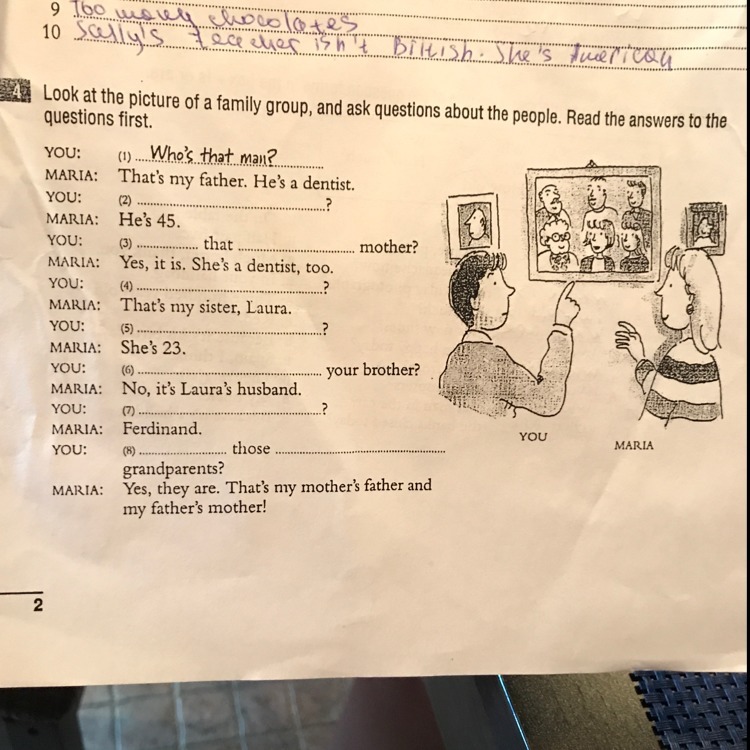 9 Too many chocolates
10 Sally's teacher isn't British. She's American
4 Look at the picture of a family group, and ask questions about the people. Read the answers to the
questions first.
YOU: (1) .... Who's that man? ....................
MARIA: That's my father. He's a dentist.
YOU: (2) ........................................................?
MARIA: He's 45.
YOU: (3) .................. that ............................... mother?
MARIA: Yes, it is. She's a dentist, too.
YOU: (4) ........................................................?
MARIA: That's my sister, Laura.
YOU: (5) ........................................................?
MARIA: She's 23.
YOU: (6) ........................................................ your brother?
MARIA: No, it's Laura's husband.
YOU: (7) ........................................................?
MARIA: Ferdinand.
YOU: (8) .......................... those .................................................
grandparents?
MARIA: Yes, they are. That's my mother's father and
my father's mother!
YOU
MARIA
2